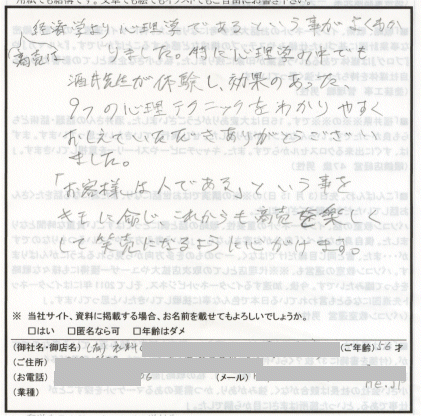 経済学より心理学であるという事がよくわか
商売は
りました。特に心理学の中でも
酒井先生が体験し、効果のあった、
9つの心理テクニックをわかりやすく
おしえていただきありがとうござい
ました。
「お客様は人である」という事を
キモに命じ、これからも商売を楽しく
して笑売になるように心がけます。
※ 当社サイト、資料に掲載する場合、お名前を載せてもよろしいでしょうか。
□はい □匿名なら可 □年齢はダメ
(御社名・御店名) (有) (ご年齢) 56 才
(ご住所)
(お電話) 06 (メール)
ne.jp
(業種)